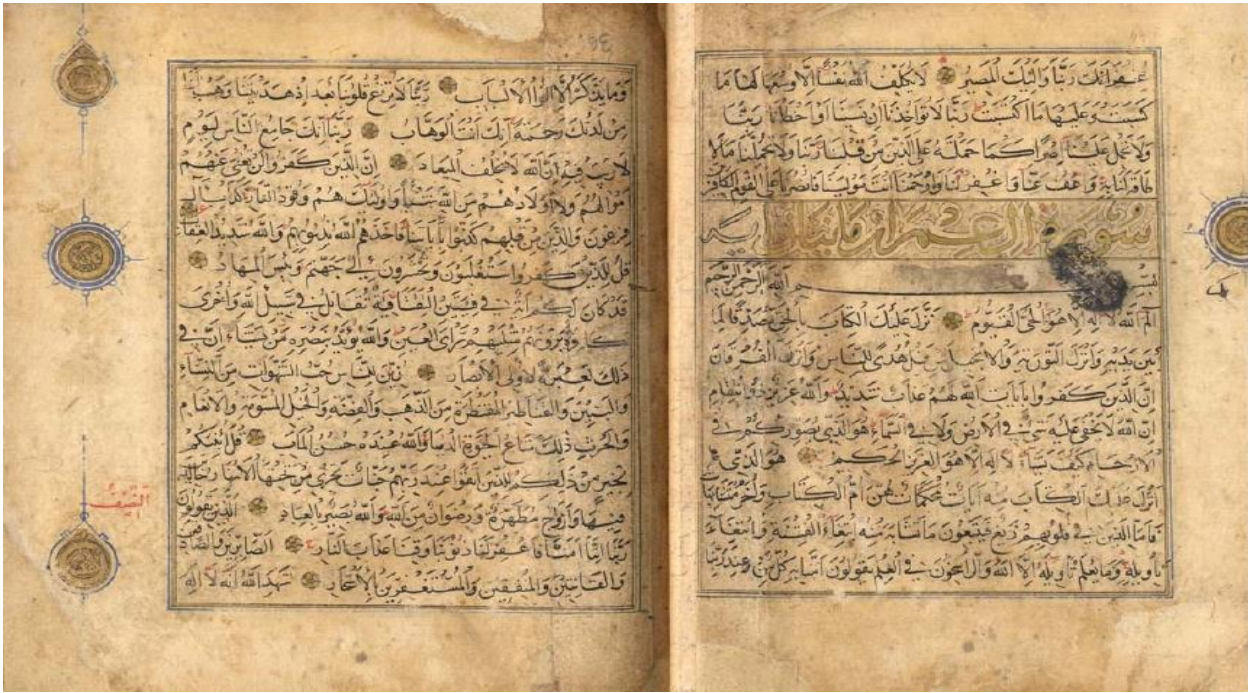 غُفْرَانَكَ رَبَّنَا وَإِلَيْكَ الْمَصِيرُ لَا يُكَلِّفُ اللَّهُ نَفْسًا إِلَّا وُسْعَهَا لَهَا مَا
كَسَبَتْ وَعَلَيْهَا مَا اكْتَسَبَتْ رَبَّنَا لَا تُوَاخِذْنَا إِنْ نَسِينَا أَوْ أَخْطَأْنَا رَبَّنَا
وَلَا تَحْمِلْ عَلَيْنَا إِصْرًا كَمَا حَمَلْتَهُ عَلَى الَّذِينَ مِنْ قَبْلِنَا رَبَّنَا وَلَا تُحَمِّلْنَا مَا لَا
طَاقَةَ لَنَا بِهِ وَاعْفُ عَنَّا وَاغْفِرْ لَنَا وَارْحَمْنَا أَنْتَ مَوْلَينَا فَانْصُرْنَا عَلَى الْقَوْمِ الْكَافِرِينَ
سورة ال عمران مائتا اية
بِسْمِ اللَّهِ الرَّحْمَنِ الرَّحِيمِ
الم اللَّهُ لَا إِلَهَ إِلَّا هُوَ الْحَيُّ الْقَيُّومُ نَزَّلَ عَلَيْكَ الْكِتَابَ بِالْحَقِّ مُصَدِّقًا لِمَا
بَيْنَ يَدَيْهِ وَأَنْزَلَ التَّوْرَيةَ وَالْإِنْجِيلَ مِنْ قَبْلُ هُدًى لِلنَّاسِ وَأَنْزَلَ الْفُرْقَانَ
إِنَّ الَّذِينَ كَفَرُوا بِآيَاتِ اللَّهِ لَهُمْ عَذَابٌ شَدِيدٌ وَاللَّهُ عَزِيزٌ ذُو انْتِقَامٍ
إِنَّ اللَّهَ لَا يَخْفَى عَلَيْهِ شَيْءٌ فِي الْأَرْضِ وَلَا فِي السَّمَاءِ هُوَ الَّذِي يُصَوِّرُكُمْ فِي
الْأَرْحَامِ كَيْفَ يَشَاءُ لَا إِلَهَ إِلَّا هُوَ الْعَزِيزُ الْحَكِيمُ هُوَ الَّذِي
أَنْزَلَ عَلَيْكَ الْكِتَابَ مِنْهُ آيَاتٌ مُحْكَمَاتٌ هُنَّ أُمُّ الْكِتَابِ وَأُخَرُ مُتَشَابِهَاتٌ
فَأَمَّا الَّذِينَ فِي قُلُوبِهِمْ زَيْغٌ فَيَتَّبِعُونَ مَا تَشَابَهَ مِنْهُ ابْتِغَاءَ الْفِتْنَةِ وَابْتِغَاءَ
تَأْوِيلِهِ وَمَا يَعْلَمُ تَأْوِيلَهُ إِلَّا اللَّهُ وَالرَّاسِخُونَ فِي الْعِلْمِ يَقُولُونَ آمَنَّا بِهِ كُلٌّ مِنْ عِنْدِ رَبِّنَا
وَمَا يَذَّكَّرُ إِلَّا أُولُوا الْأَلْبَابِ رَبَّنَا لَا تُزِغْ قُلُوبَنَا بَعْدَ إِذْ هَدَيْتَنَا وَهَبْ لَنَا
مِنْ لَدُنْكَ رَحْمَةً إِنَّكَ أَنْتَ الْوَهَّابُ رَبَّنَا إِنَّكَ جَامِعُ النَّاسِ لِيَوْمٍ
لَا رَيْبَ فِيهِ إِنَّ اللَّهَ لَا يُخْلِفُ الْمِيعَادَ إِنَّ الَّذِينَ كَفَرُوا لَنْ تُغْنِيَ عَنْهُمْ
أَمْوَالُهُمْ وَلَا أَوْلَادُهُمْ مِنَ اللَّهِ شَيْئًا وَأُولَئِكَ هُمْ وَقُودُ النَّارِ كَدَأْبِ آلِ
فِرْعَوْنَ وَالَّذِينَ مِنْ قَبْلِهِمْ كَذَّبُوا بِآيَاتِنَا فَأَخَذَهُمُ اللَّهُ بِذُنُوبِهِمْ وَاللَّهُ شَدِيدُ الْعِقَابِ
قُلْ لِلَّذِينَ كَفَرُوا سَتُغْلَبُونَ وَتُحْشَرُونَ إِلَى جَهَنَّمَ وَبِئْسَ الْمِهَادُ
قَدْ كَانَ لَكُمْ آيَةٌ فِي فِئَتَيْنِ الْتَقَتَا فِئَةٌ تُقَاتِلُ فِي سَبِيلِ اللَّهِ وَأُخْرَى
كَافِرَةٌ يَرَوْنَهُمْ مِثْلَيْهِمْ رَأْيَ الْعَيْنِ وَاللَّهُ يُؤَيِّدُ بِنَصْرِهِ مَنْ يَشَاءُ إِنَّ فِي
ذَلِكَ لَعِبْرَةً لِأُولِي الْأَبْصَارِ زُيِّنَ لِلنَّاسِ حُبُّ الشَّهَوَاتِ مِنَ النِّسَاءِ
وَالْبَنِينَ وَالْقَنَاطِيرِ الْمُقَنْطَرَةِ مِنَ الذَّهَبِ وَالْفِضَّةِ وَالْخَيْلِ الْمُسَوَّمَةِ وَالْأَنْعَامِ
وَالْحَرْثِ ذَلِكَ مَتَاعُ الْحَيَوةِ الدُّنْيَا وَاللَّهُ عِنْدَهُ حُسْنُ الْمَآبِ قُلْ أَؤُنَبِّئُكُمْ
بِخَيْرٍ مِنْ ذَلِكُمْ لِلَّذِينَ اتَّقَوْا عِنْدَ رَبِّهِمْ جَنَّاتٌ تَجْرِي مِنْ تَحْتِهَا الْأَنْهَارُ خَالِدِينَ
فِيهَا وَأَزْوَاجٌ مُطَهَّرَةٌ وَرِضْوَانٌ مِنَ اللَّهِ وَاللَّهُ بَصِيرٌ بِالْعِبَادِ الَّذِينَ يَقُولُونَ
رَبَّنَا إِنَّنَا آمَنَّا فَاغْفِرْ لَنَا ذُنُوبَنَا وَقِنَا عَذَابَ النَّارِ الصَّابِرِينَ وَالصَّادِقِينَ
وَالْقَانِتِينَ وَالْمُنْفِقِينَ وَالْمُسْتَغْفِرِينَ بِالْأَسْحَارِ شَهِدَ اللَّهُ أَنَّهُ لَا إِلَهَ
النصف